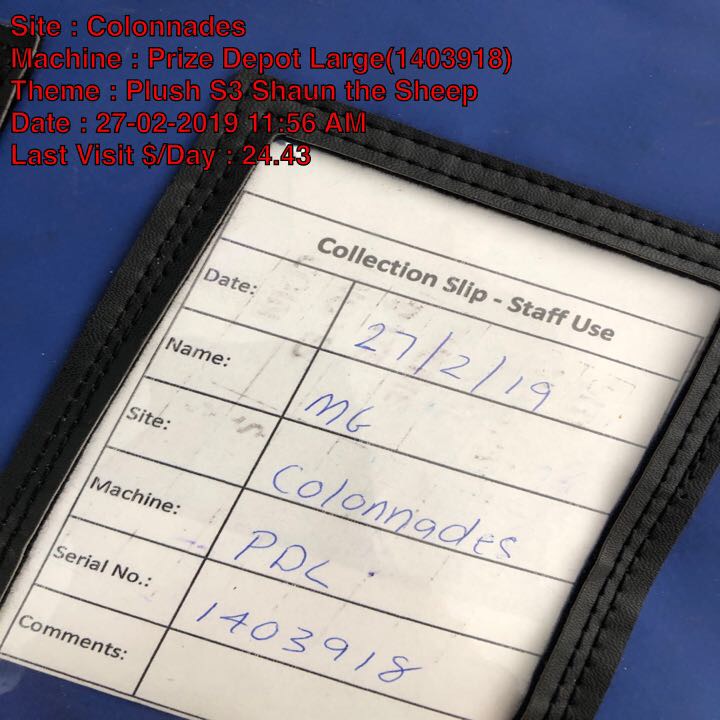 Site : Colonnades
Machine : Prize Depot Large(1403918)
Theme : Plush S3 Shaun the Sheep
Date : 27-02-2019 11:56 AM
Last Visit $/Day : 24.43
Collection Slip - Staff Use
Date: 27/2/19
Name: MG
Site: Colonnades
Machine: PDL
Serial No.: 1403918
Comments: